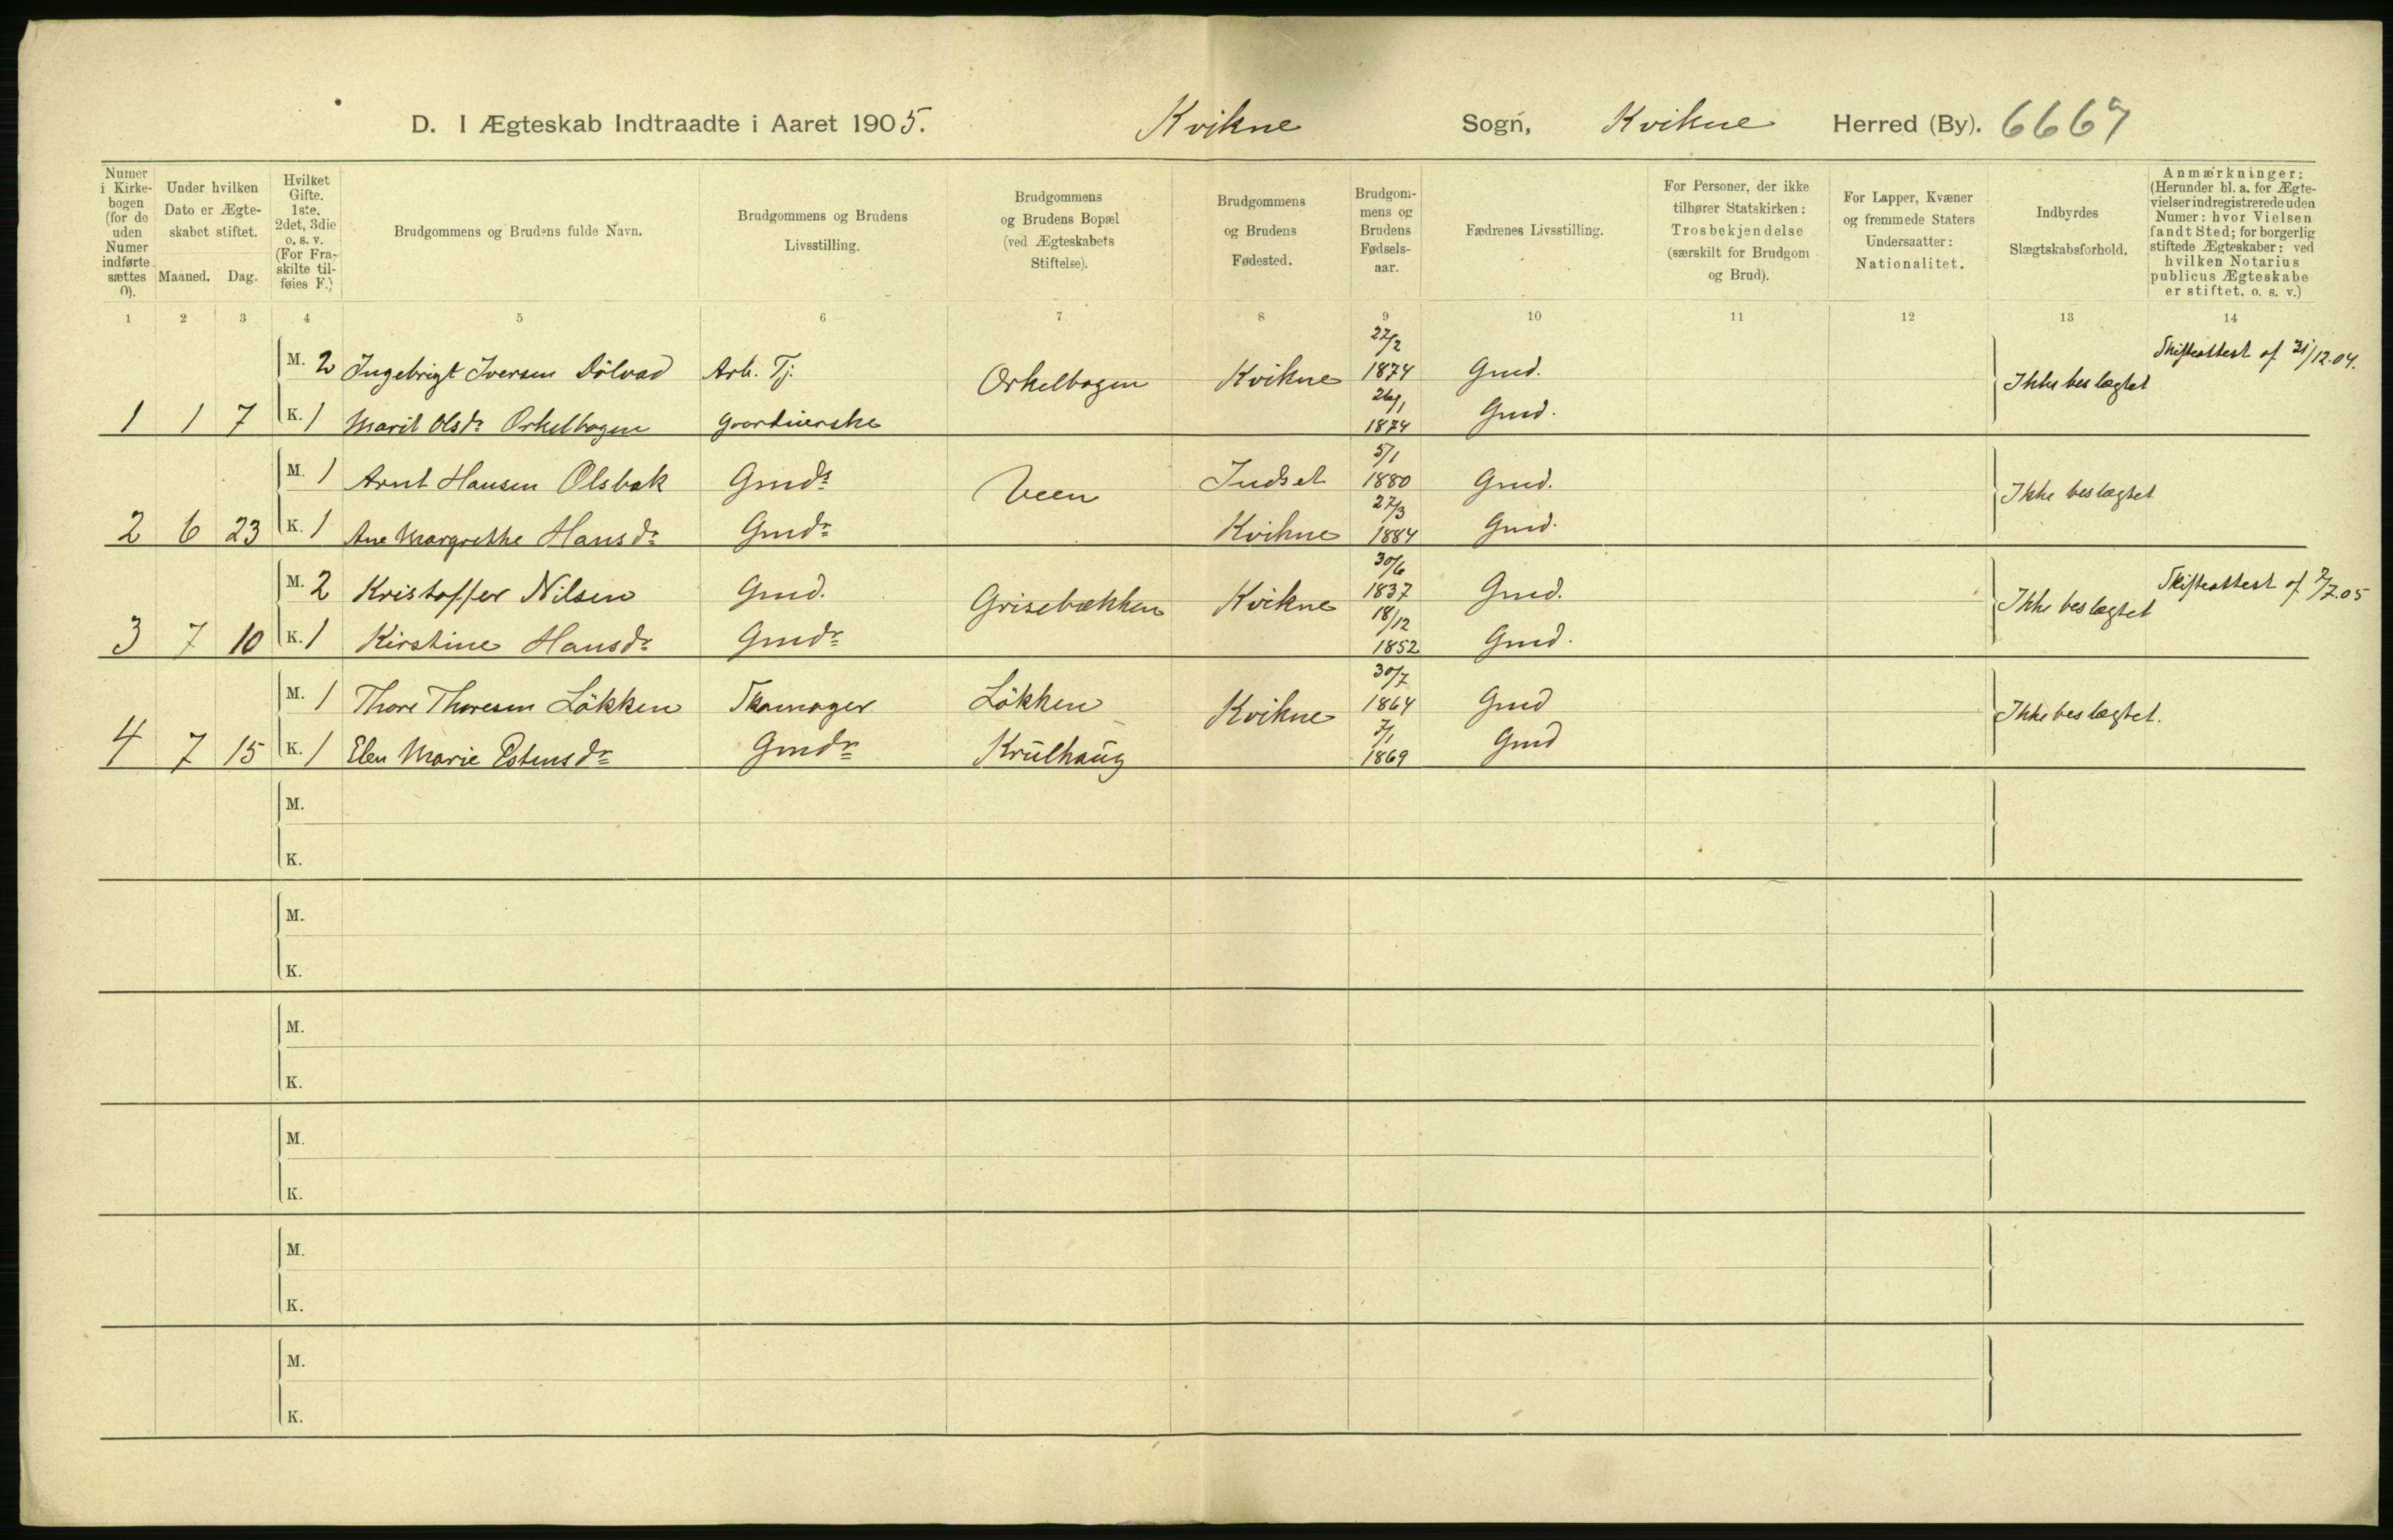 D. I Ægteskab Indtraadte i Aaret 1905. Kvikne Sogn, Kvikne Herred (By).
Numer i Kirkebogen (for de uden Numer indførte sættes 0).
Under hvilken Dato er Ægteskabet stiftet. Maaned. Dag.
Hvilket Gifte. 1ste, 2det, 3die o. s. v. (For Fraskilte tilføies F.)
Brudgommens og Brudens fulde Navn.
Brudgommens og Brudens Livsstilling.
Brudgommens og Brudens Bopæl (ved Ægteskabets Stiftelse).
Brudgommens og Brudens Fødested.
Brudgommens og Brudens Fødselsaar.
Fædrenes Livsstilling.
For Personer, der ikke tilhører Statskirken: Trosbekjendelse (særskilt for Brudgom og Brud).
For Lapper, Kvæner og fremmede Staters Undersaatter: Nationalitet.
Indbyrdes Slægtskabsforhold.
Anmærkninger: (Herunder bl. a. for Ægtevielser indregistrerede uden Numer: hvor Vielsen fandt Sted; for borgerlig stiftede Ægteskaber: ved hvilken Notarius publicus Ægteskabe er stiftet, o. s. v.)
1 2 3 4 5 6 7 8 9 10 11 12 13 14
M. 2 Ingebrigt Iversen Dölvad Arb. Tj. Orkelbogen Kvikne 27/2 1874 Gmd. Ikke beslægtet Skifteattest af 31/12.04.
1 1 7 K. 1 Marit Olsdr Orkelbogen Gaardbierske 26/1 1874 Gmd.
M. 1 Arnt Hansen Olsbak Gmds Veen Indset 5/1 1880 Gmd. Ikke beslægtet
2 6 23 K. 1 Ane Margrethe Hansdr Gmdr Kvikne 27/3 1884 Gmd.
M. 2 Kristoffer Nilsen Gmd. Grisebækken Kvikne 30/6 1837 Gmd. Ikke beslægtet Skifteattest af 7/7.05
3 7 10 K. 1 Kirstine Hansdr Gmdr 18/12 1852 Gmd.
M. 1 Thore Thoresen Lökken Skomager Lökken Kvikne 30/7 1864 Gmd Ikke beslægtet.
4 7 15 K. 1 Elen Marie Estensdr Gmdr Krulhaug 7/1 1869 Gmd
M.
K.
M.
K.
M.
K.
M.
K.
M.
K.
M.
K.